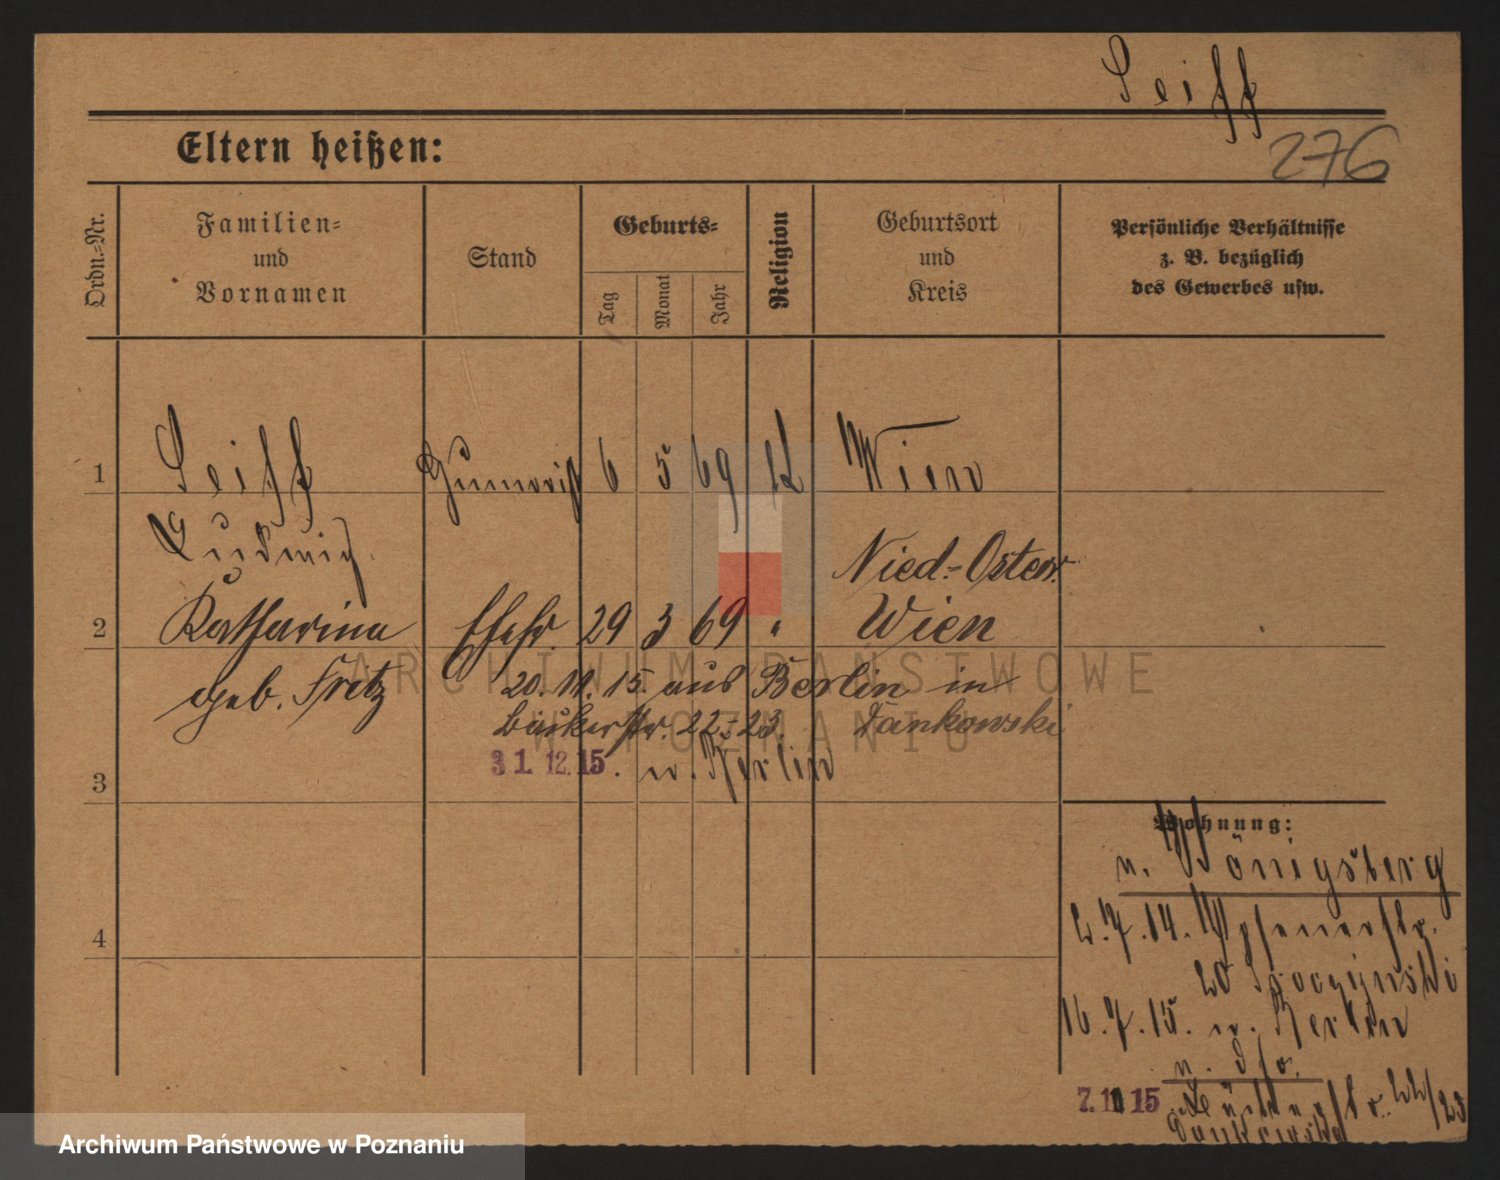 Seiff
276
Eltern heißen:
Ordn.-Nr.
Familien-
und
Vornamen
Stand
Geburts-
Tag
Monat
Jahr
Religion
Geburtsort
und
Kreis
Persönliche Verhältnisse
z. B. bezüglich
des Gewerbes usw.
1 Seiff Humorist 6 5 69 k Wien
Ludwig.
Nied.-Österr.
2 Katharina Ehefr. 29 3 69 " Wien
geb. Fritz
20. 11. 15. aus Berlin in
Bäckerstr. 22-23. Dankowski
31. 12. 15. n. Berlin
3
Wohnung:
n. Königsberg
2.7.14.
20
16.7.15. n. Berlin
4
7. 11 15 Bäckerstr. 22/23
Dankowski
ARCHIWUM PAŃSTWOWE
W POZNANIU
Archiwum Państwowe w Poznaniu